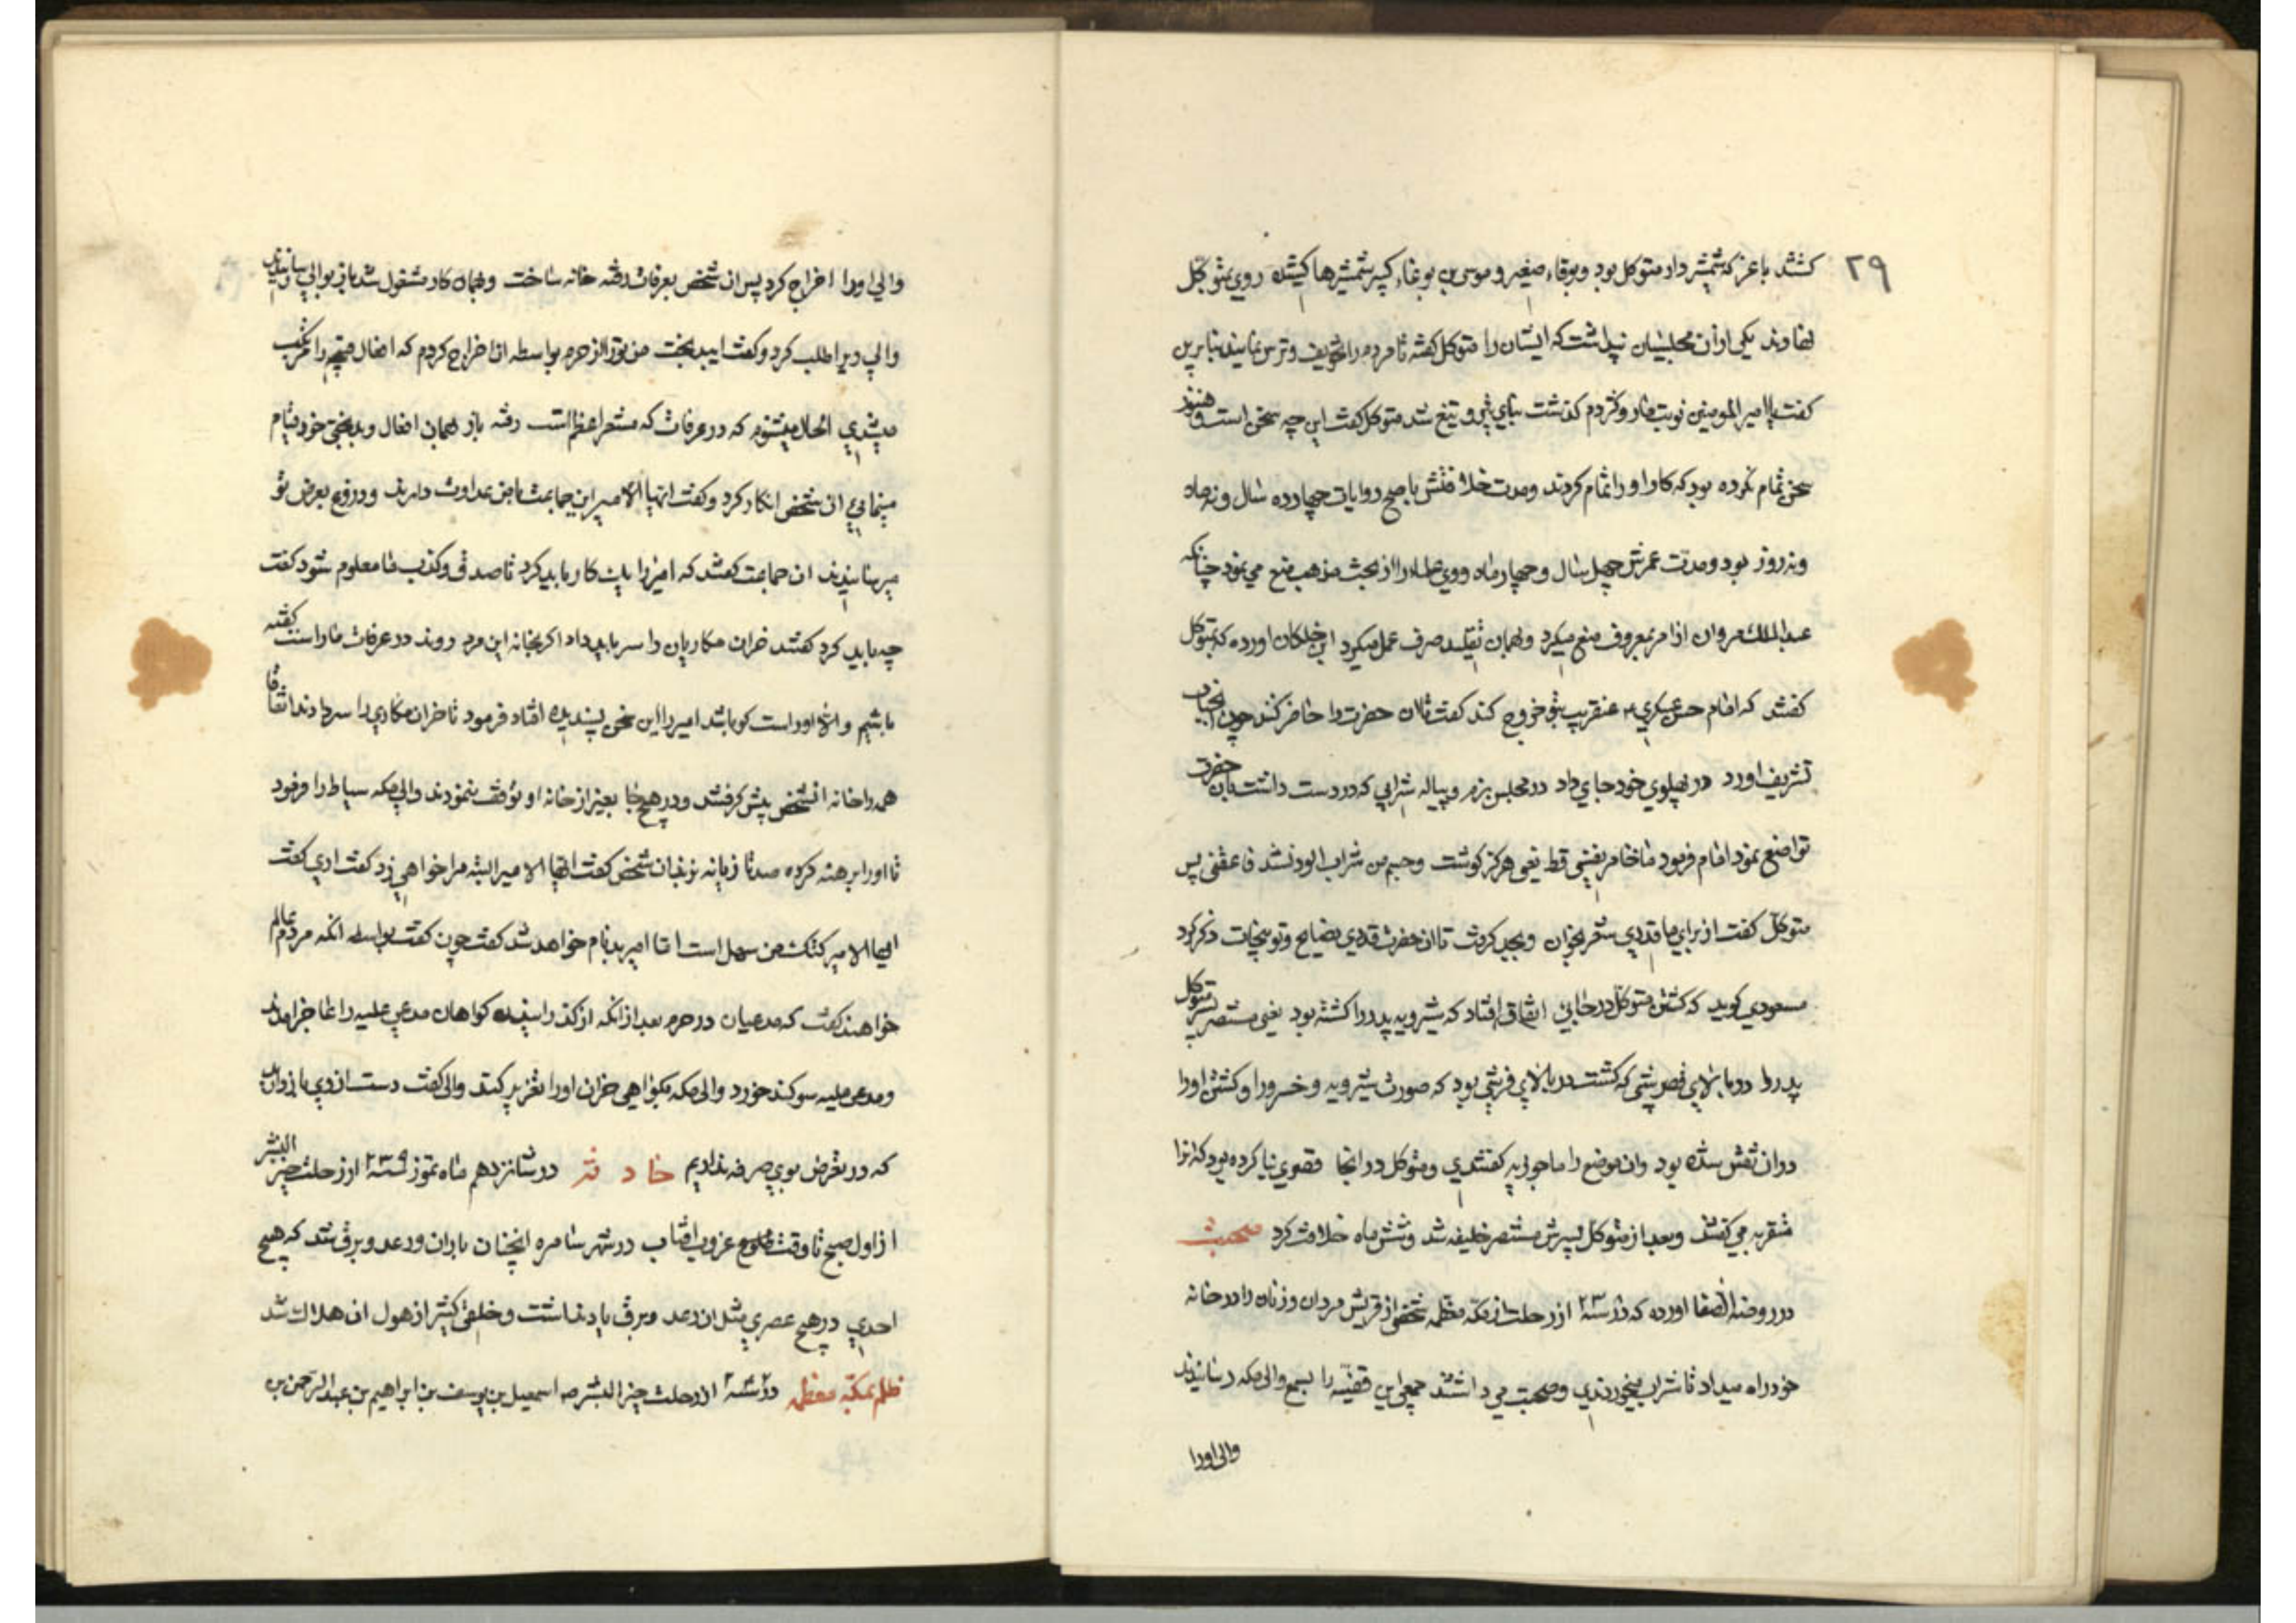 ۲۹
کشتند باغر که شمشیردار متوکل بود و بوقاء صغیر و موسی بن بوغاء کبیر شمشیرها کشیده روی بمتوکل
نهادند یکی از ان مجلسیان پنداشت که ایشان را متوکل گفته تا مردم را تخویف و ترس نمایند بنابرین
کفت یا امیر المومنین نوبت مار و کژدم کذشت بنای و تیغ شد متوکل کفت این چه سخن است و هنوز
سخن تمام نکرده بود که کار او را تمام کردند و مدت خلافتش باصح روایات چهارده سال و نه ماه
و نه روز بود و مدت عمرش چهل سال و چهار ماه و وی علماء را از بحث مذهب منع می نمود چنانکه
عبدالملک مروان از امر بمعروف منع میکرد و بهمان تقلید صرف عمل میکرد ابن خلکان اورده که بمتوکل
کفتند که امام حسن عسکری ع عنقریب بتو خروج کند کفت تا ان حضرت را حاضر کنند چون انجناب
تشریف اورد در پهلوی خود جای داد در مجلس بزم و پیاله شرابی که در دست داشت بان حضرت
تواضع نمود امام فرمود ما خامر یعنی قط یعی هرکز کوشت و جسم من شراب الود نشد فاعفنی پس
متوکل کفت از برای ما قدری شعر بخوان و بجد کرفت تا ان حضرت قدری نصایح و توبیخات ذکر کرد
مسعودی کوید که کشتن متوکل در جایی اتفاق افتاد که شیرویه پدر را کشته بود یعنی مستنصر پسر متوکل
پدر را در بالای فصر بشی که کشت در بالای فرشی بود که صورت شیرویه و خسرو را و کشتن او را
در ان نقش شده بود و ان موضع را ماحوریه کفتندی و متوکل در انجا قصوری بنا کرده بود که انرا
شقریه می کفتند و بعد از متوکل پسرش منتصر خلیفه شد و شش ماه خلافت کرد صحبت
در روضة الصفا اورده که در سنه ۲۳ از رحلت در مکه معظمه شخصی از قریش مردان و زنان را در خانه
خود راه میداد تا شراب میخوردندی و صحبت می داشتند جمعی این قضیه را بسمع والی مکه رسانیدند
والی او را
والی او را اخراج کرد پس ان شخص بعرفات رفته خانه ساخت و بهمان کار مشغول شد باز بوالی رسانیدند
والی ویرا طلب کرد و کفت ای بدبخت من تو را از حرم بواسطه ان اخراج کردم که افعال قبیح را مرتکب
میشدی الحال میشنوم که در عرفات که مشعر اعظم است رفته باز همان افعال و بدبختی خود قیام
مینمایی ان شخص انکار کرد و کفت ایها الامیر این جماعت با من عداوت دارند و دروغ بعرض تو
میرسانیدند ان جماعت کفتند که امیر را یک کار باید کرد تا صدق و کذب ما معلوم شود کفت
چه باید کرد کفتند خران مکاریان را سر باید داد اکر بخانه این مرد روند در عرفات ما راست کفته
باشیم و الا او راست کو باشد امیر را این سخن پسندیده افتاد فرمود تا خران مکاری را سر دادند اتفاقا
همه راه خانه انشخص پیش کرفتند و در هیچ جا بغیر از خانه او توقف ننمودند والی مکه سیاط را فرمود
تا او را برهنه کرده صد تا زیانه بزند ان شخص کفت ایها الامیر البته مرا خواهی زد کفت اری کفت
ایها الامیر کتک من سهل است اما امیر بدنام خواهد شد کفت چون کفت بواسطه انکه مردم عالم
خواهند کفت که مدعیان در حرم بعد از انکه از کذرانیدن کواهان مدعی علیه را عاجز امدند
و مدعی علیه سوکند خورد والی مکه بکواهی خران او را تعزیر کند والی کفت دست از وی بازدارید
که در تعرض بوی صرفه نداریم حادثه در شانزدهم ماه تموز سنه ۲۳۹ از رحلت خیر البشر
از اول صبح تا وقت غروب افتاب در شهر سامره انچنان باران و رعد و برق شد که هیچ
احدی در هیچ عصری مثل ان رعد و برق یاد نداشت و خلقی کثیر از هول ان هلاک شد
ظلم بمکه معظمه در سنه از رحلت خیر البشر ص اسمعیل بن یوسف بن ابراهیم بن عبد الرحمن بن